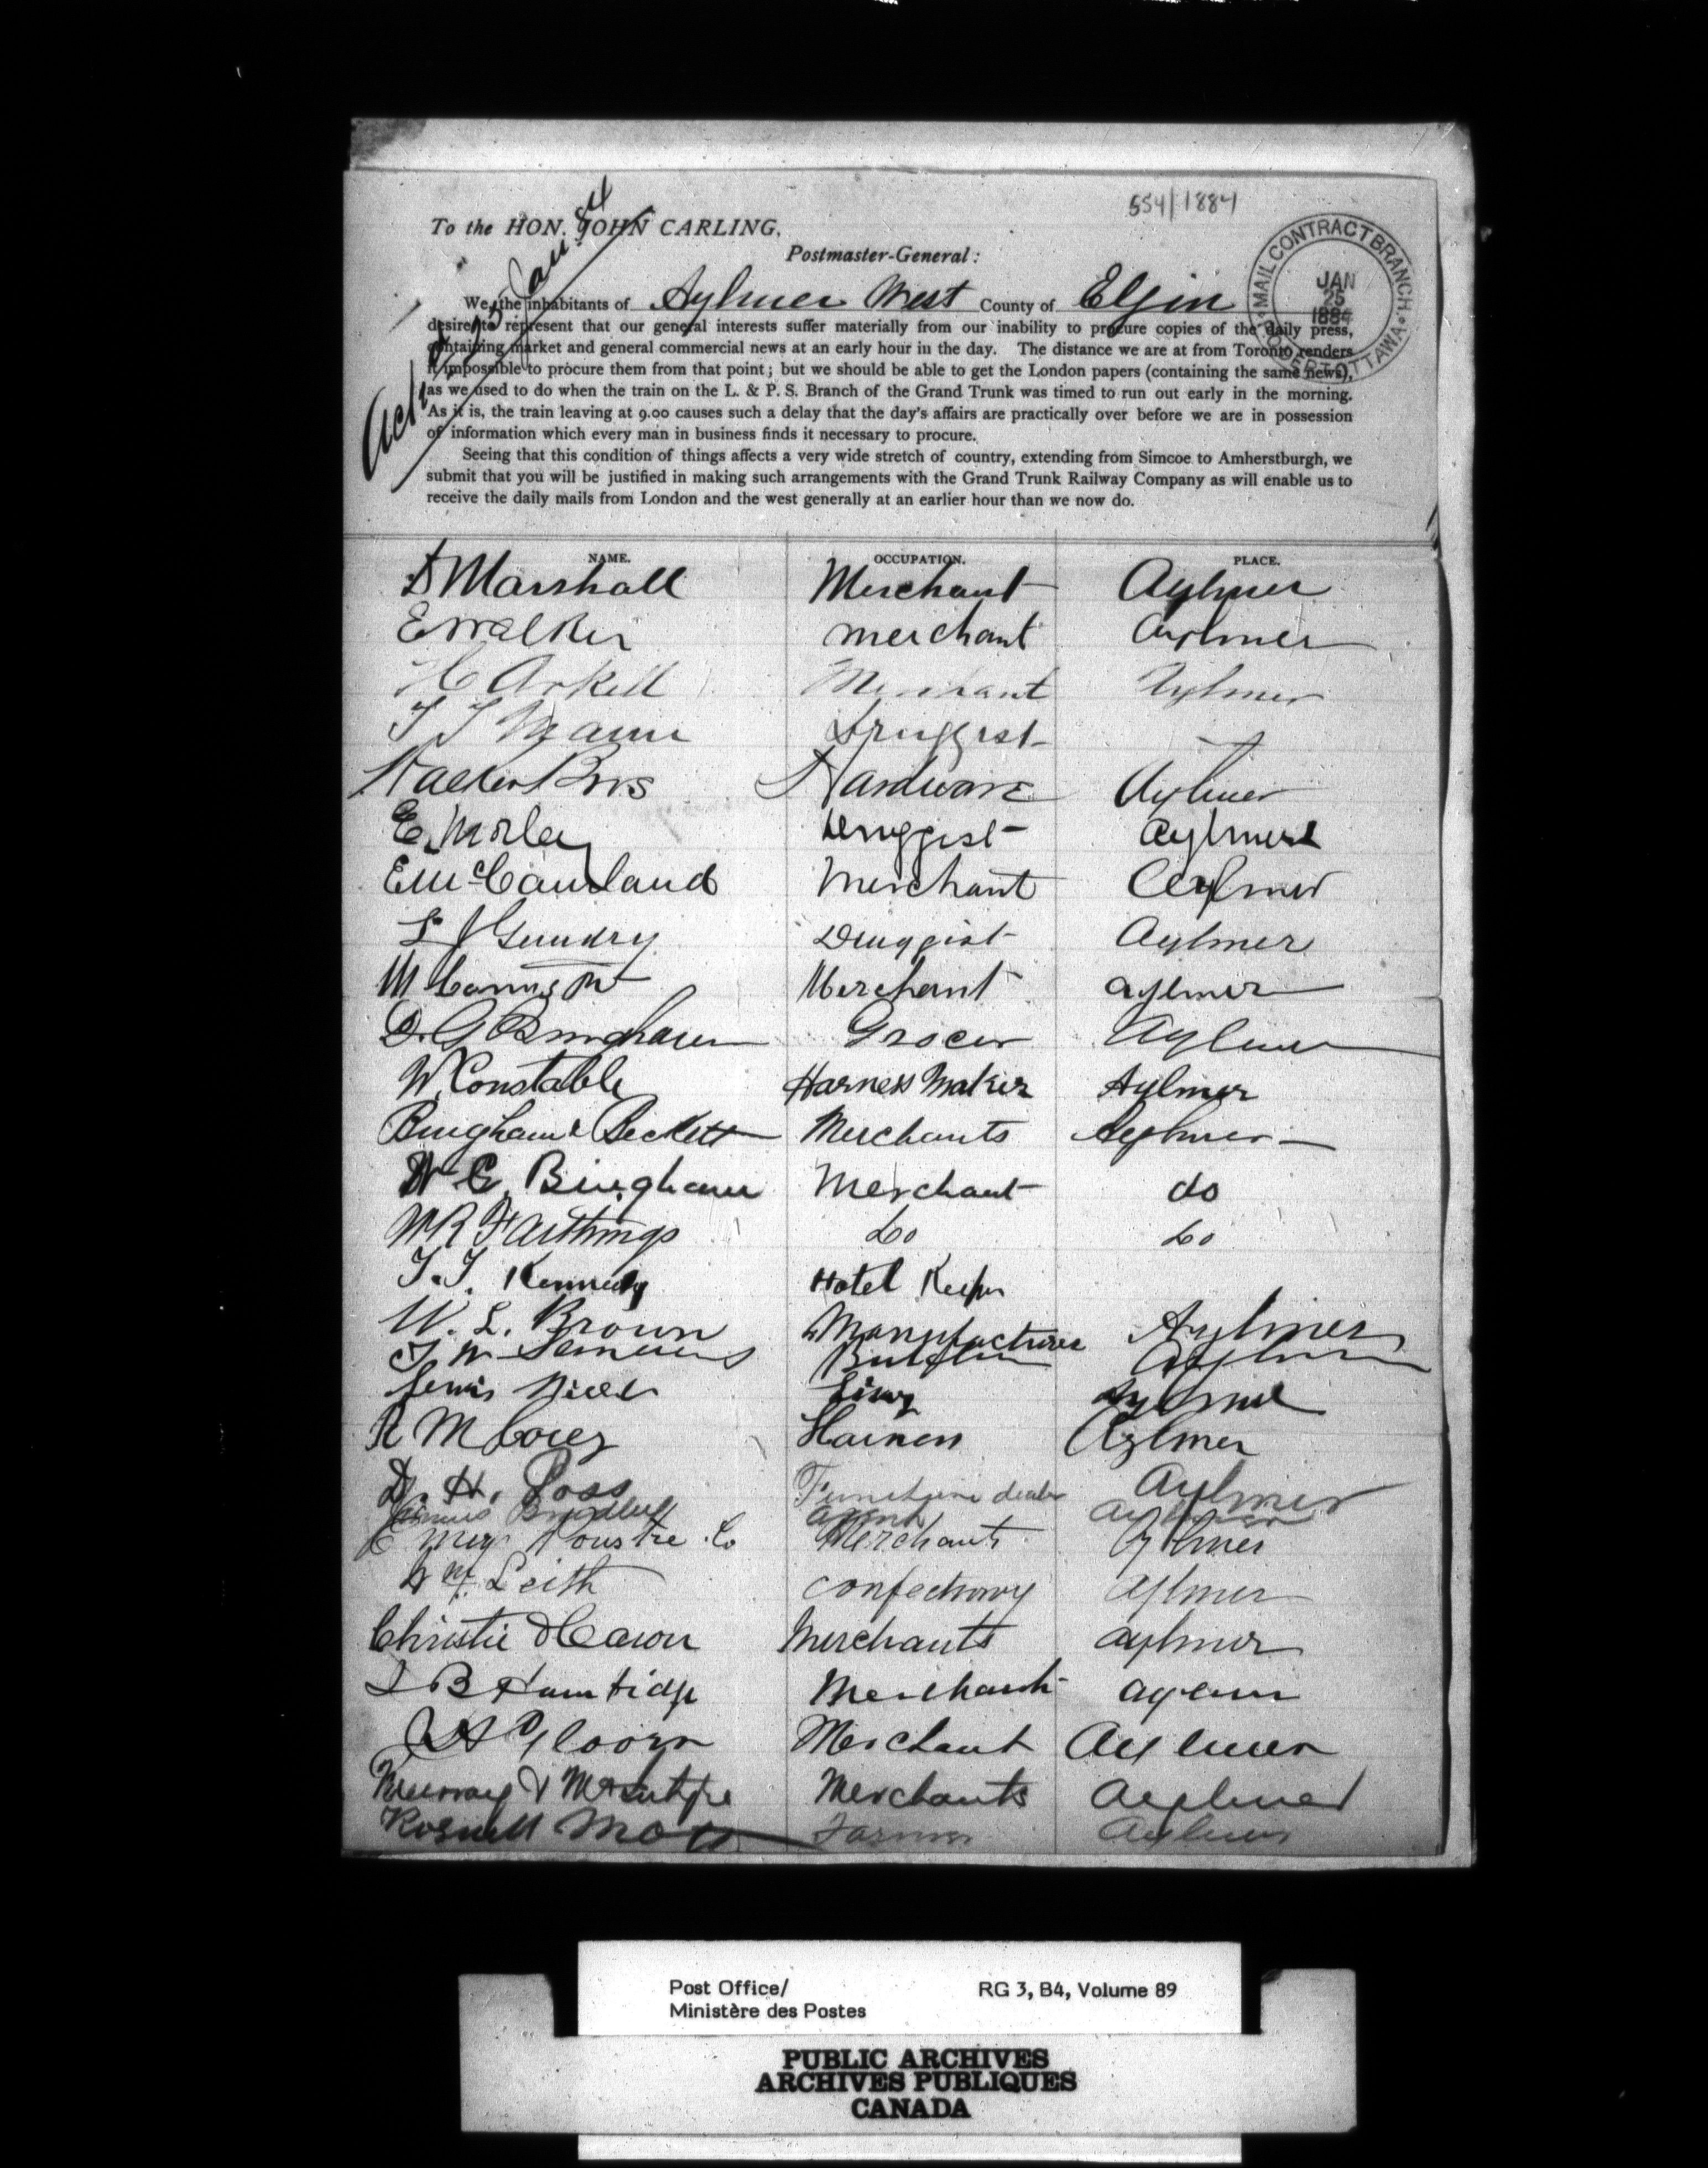 554/1884
To the HON. JOHN CARLING,
Postmaster-General:
MAIL CONTRACT BRANCH. OTTAWA
JAN
25
1884
Ack'd 25 Jan 84
We, the inhabitants of Aylmer West County of Elgin
desire to represent that our general interests suffer materially from our inability to procure copies of the daily press,
containing market and general commercial news at an early hour in the day. The distance we are at from Toronto renders
it impossible to procure them from that point; but we should be able to get the London papers (containing the same news),
as we used to do when the train on the L. & P. S. Branch of the Grand Trunk was timed to run out early in the morning.
As it is, the train leaving at 9.00 causes such a delay that the day's affairs are practically over before we are in possession
of information which every man in business finds it necessary to procure.
Seeing that this condition of things affects a very wide stretch of country, extending from Simcoe to Amherstburgh, we
submit that you will be justified in making such arrangements with the Grand Trunk Railway Company as will enable us to
receive the daily mails from London and the west generally at an earlier hour than we now do.
NAME. OCCUPATION. PLACE.
Marshall Merchant Aylmer
E Walker merchant Aylmer
H Arkell Merchant Aylmer
Mann Druggist
Walker Bros Hardware Aylmer
E. Morley Druggist Aylmer
E McCausland Merchant Aylmer
J Gundry Druggist Aylmer
M Merchant Aylmer
D. G Bingham Grocer Aylmer
W. Constable Harness Maker Aylmer
Bingham & Beckett Merchants Aylmer
Bingham Merchant do
W R Farthings Do Do
T. T. Kennedy Hotel Keeper
W. L. Brown Manufacturer Aylmer
T W Butcher Aylmer
Lewis Livry Aylmer
R M Corey Harness Aylmer
D. H. Furniture dealer Aylmer
James Bradley agent Aylmer
Co Merchants Aylmer
Wm. Leith Confectionry Aylmer
Christie & Caron Merchants Aylmer
B Merchant Aylmer
Glover Merchant Aylmer
Murray & McIntyre Merchants Aylmer
Rosnell Mott Farmer Aylmer
Post Office/ RG 3, B4, Volume 89
Ministère des Postes
PUBLIC ARCHIVES
ARCHIVES PUBLIQUES
CANADA